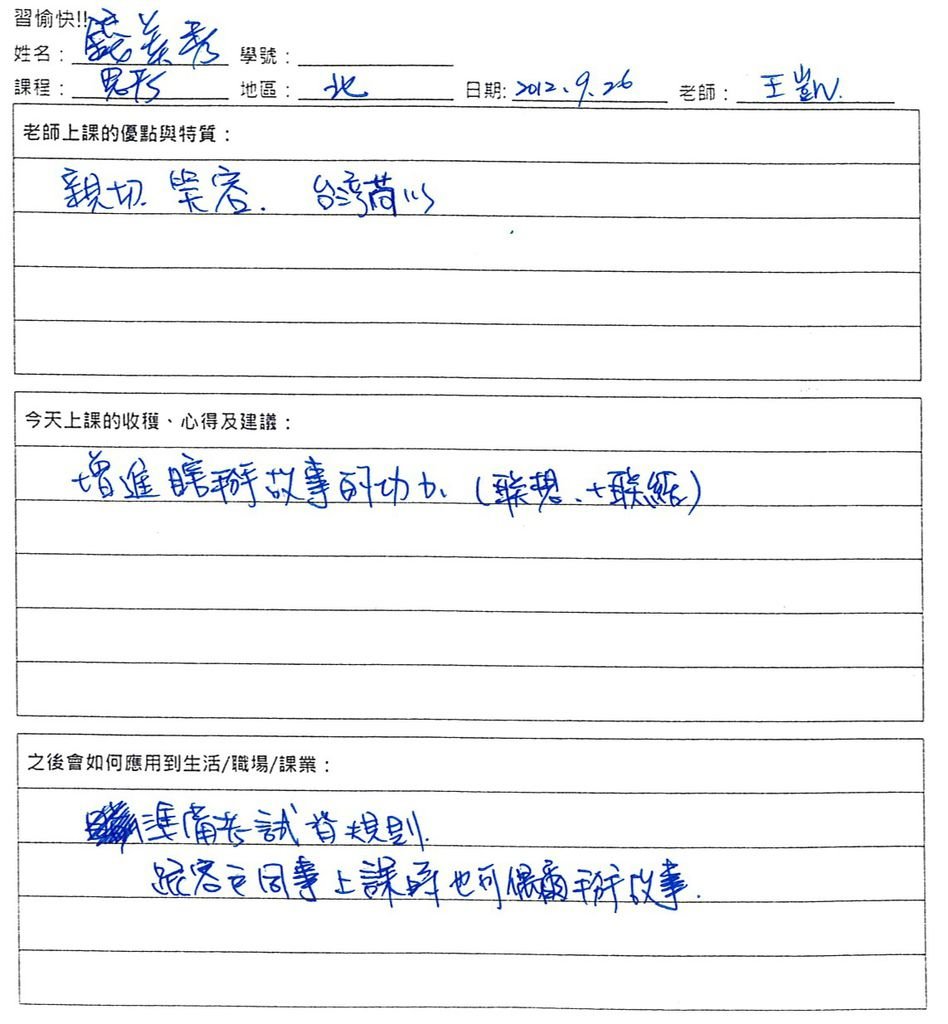 習愉快!!
姓名： 美秀 學號：
課程： 地區： 北 日期: 2012.9.26 老師： 王凱
老師上課的優點與特質：
親切 笑容. 台灣
今天上課的收穫、心得及建議：
增進瞎掰故事的功力. (聯想.+聯結)
之後會如何應用到生活/職場/課業：
準備考試背規則.
跟客戶同事上課時也可偶爾掰故事.